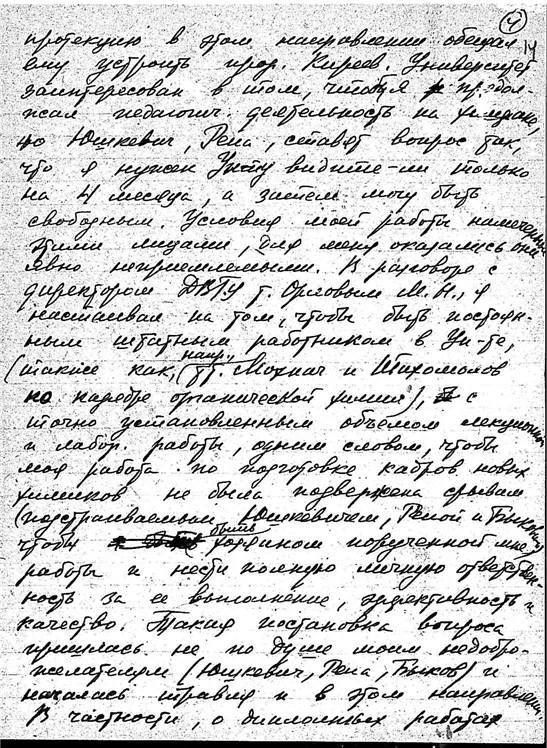 4
14
протекцию в этом направлении обещал
ему устроить проф. Киреев. Университет
заинтересован в том, чтобы я продол-
жал педагогич. деятельность на химфаке,
но Юшкевич, Репа, ставят вопрос так,
что я нужен Ун-ту видите-ли только
на 4 месяца, а затем могу быть
свободным. Условия моей работы намеченные
этими лицами, для меня оказались они
явно неприемлемыми. В разговоре с
директором ДВГУ т. Орловым М.Н., я
настаивал на том, чтобы быть постоян-
ным штатным работником в Ун-те,
(такие как, напр., тт. Мохнач и Тихомолов
на кафедре органической химии), с
точно установленным объемом лекционной
и лабор. работы, одним словом, чтобы
моя работа по подготовке кадров новых
химиков не была подвержена срывам
(подстраиваемым Юшкевичем, Репой и Быковым)
чтобы быть хозяином порученной мне
работы и нести полную личную ответствен-
ность за ее выполнение, эффективность и
качество. Такая постановка вопроса
пришлась не по душе моим недобро-
желателям (Юшкевич, Репа, Быков) и
началась травля и в этом направлении.
В частности, о дипломных работах